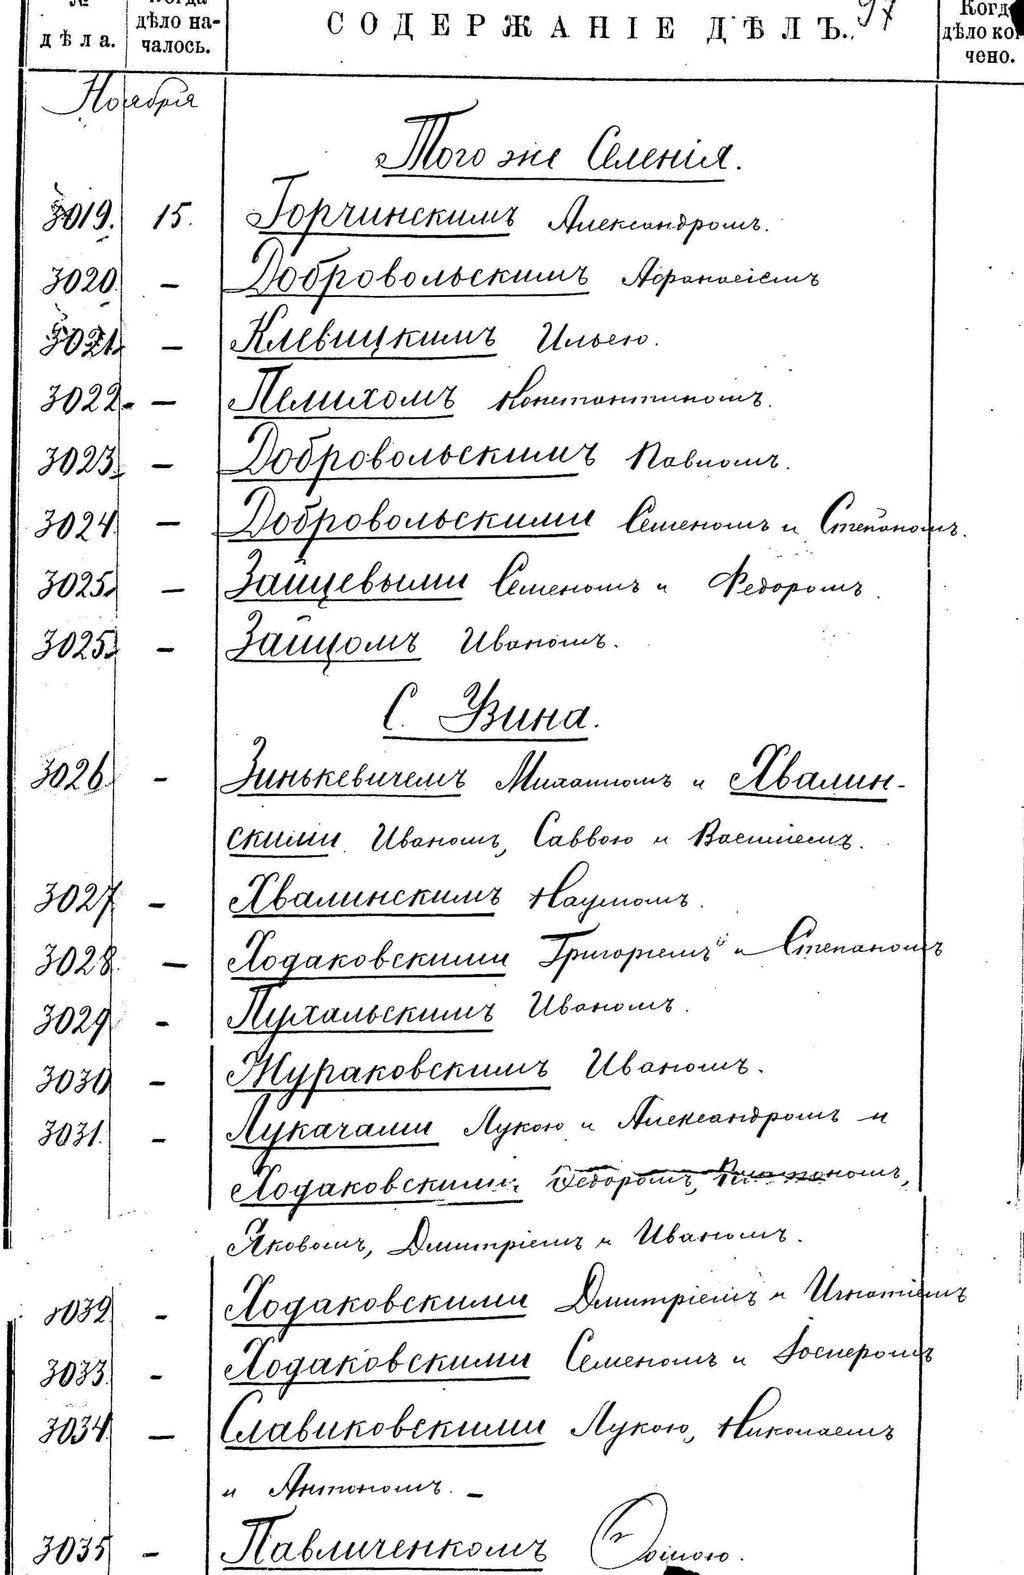 № дѣла.
Когда дѣло началось.
СОДЕРЖАНІЕ ДѢЛЪ.
97
Когда дѣло кончено.
Ноября
Того же Селенія.
3019. 15. Горчинскимъ Александромъ.
3020. — Добровольскимъ Афанасіемъ
3021. — Клевицкимъ Ильею.
3022. — Пелихомъ Константиномъ.
3023. — Добровольскимъ Павломъ.
3024. — Добровольскими Семеномъ и Степаномъ.
3025. — Зайцевыми Семеномъ и Федоромъ.
3025. — Зайцомъ Иваномъ.
С. Узина.
3026. — Зинькевичемъ Михаиломъ и Хвалин-
скими Иваномъ, Саввою и Василіемъ.
3027 — Хвалинскимъ Наумомъ.
3028. — Ходаковскими Григоріемъ и Степаномъ
3029 — Пухальскимъ Иваномъ.
3030 — Жураковскимъ Иваномъ.
3031. — Лукачами Лукою и Александромъ и
Ходаковскими: Федоромъ,
Яковомъ, Дмитріемъ и Иваномъ.
3032 — Ходаковскими Дмитріемъ и Игнатіемъ
3033. — Ходаковскими Семеномъ и
3034. — Славиковскими Лукою, Николаемъ
и Антономъ. —
3035 — Павличенкомъ Фомою.